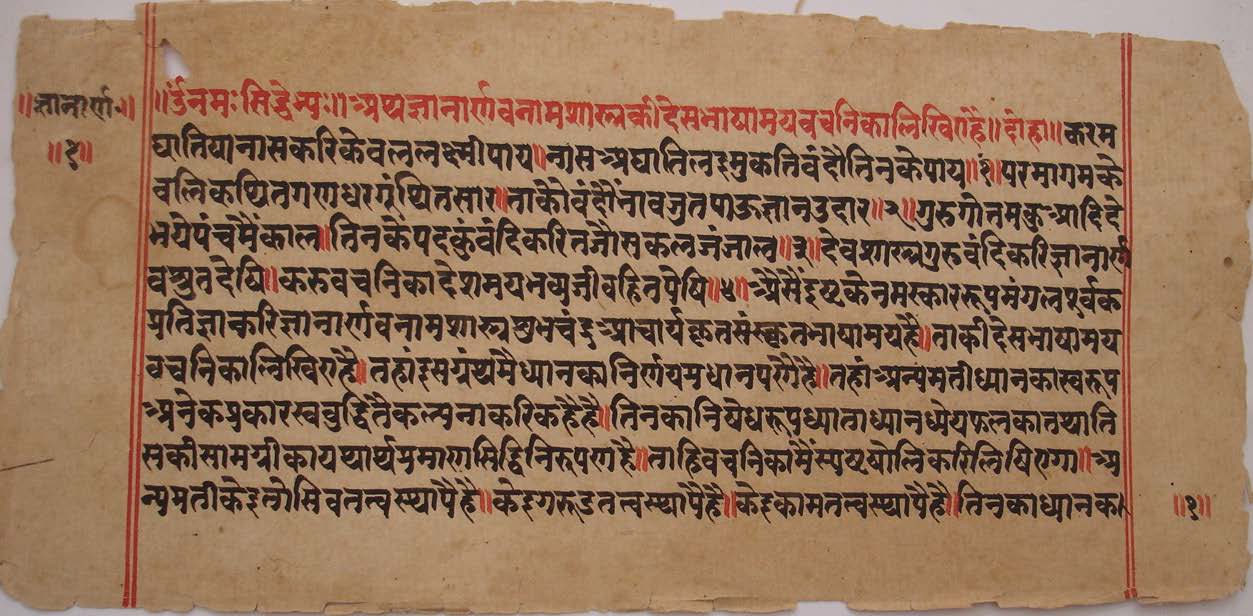 ॥ज्ञानार्ण॰॥
॥१॥
॥ॐनमःसिद्धेभ्यः॥अथज्ञानार्णवनामशास्त्रकीदेसभाषामयवचनिकालिखिएहै॥दोहा॥करम
घातियानासकरिकेवललक्ष्मीपाय॥नासअघातिलइमुकतिवंदौतिनकेपाय॥१॥परमागमके
वलिकथितगणधरगूंथितसार॥ताकौवंदौंभावजुतपाऊज्ञानउदार॥२॥गुरुगोतमकुंआदिदे
भयेपंचमैंकाल॥तिनकेपदकुंवंदिकरितजौसकलजंजाल॥३॥देवशास्त्रगुरुवंदिकरिज्ञानार्ण
वश्रुतदेषि॥करुवचनिकादेशमयभव्यजीवहितपेषि॥४॥अैसैंइष्टकेनमस्काररूपमंगलपूर्वक
प्रतिज्ञाकरिज्ञानार्णवनामशास्त्रशुभचंद्रआचार्यकृतसंस्कृतभाषामयहै॥ताकीदेसभाषामय
वचनिकालिखिएहै॥तहांइसग्रंथमैध्यानकानिर्णयप्रधानपणैहै॥तहांअन्यमतीध्यानकास्वरूप
अनेकप्रकारस्वबुद्धितैकल्पनाकरिकहैहै॥तिनकानिषेधरूपध्याताध्यानध्येयफलकातथाति
सकीसामग्रीकायथार्थप्रमाणसिद्धिनिरूपणहै॥ताहिवचनिकामैंस्पष्टषोलिकरिलिषिएगा॥अ
न्यमतीकेइतोसिवतत्वस्थापैहै॥केइगरुडतत्वस्थापैहै॥केइकामतत्वस्थापैहै॥तिनकाध्यानका
॥१॥